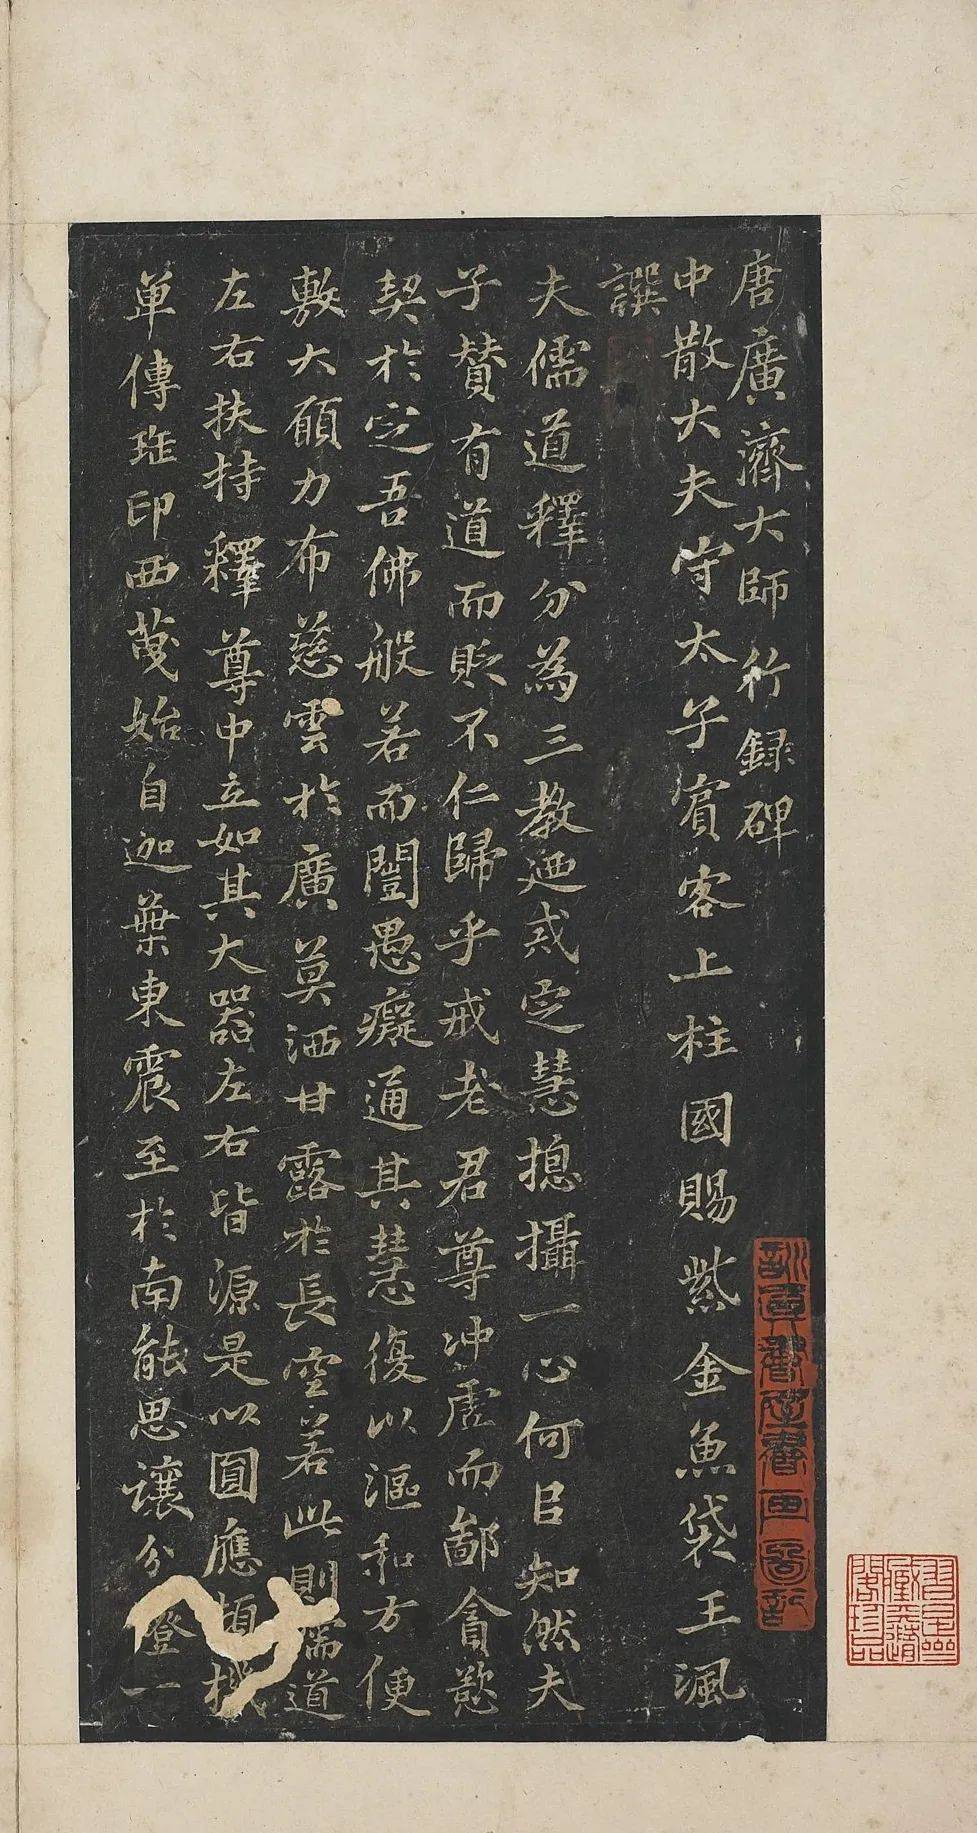 唐廣濟大師行録碑
中散大夫守太子賓客上柱國賜紫金魚袋王諷
譔
夫儒道釋分為三教廼戒定慧摠攝一心何㠯知然夫
子賛有道而貶不仁歸乎戒老君尊冲虛而鄙貪慾
契於定吾佛般若而闓愚癡通其慧復以漚和方便
敷大願力布慈雲於廣莫洒甘露於長空若此則儒道
左右扶持釋尊中立如其大器左右皆源是以圓應機
單傳印西始自迦葉東震至於南能思讓分燈一